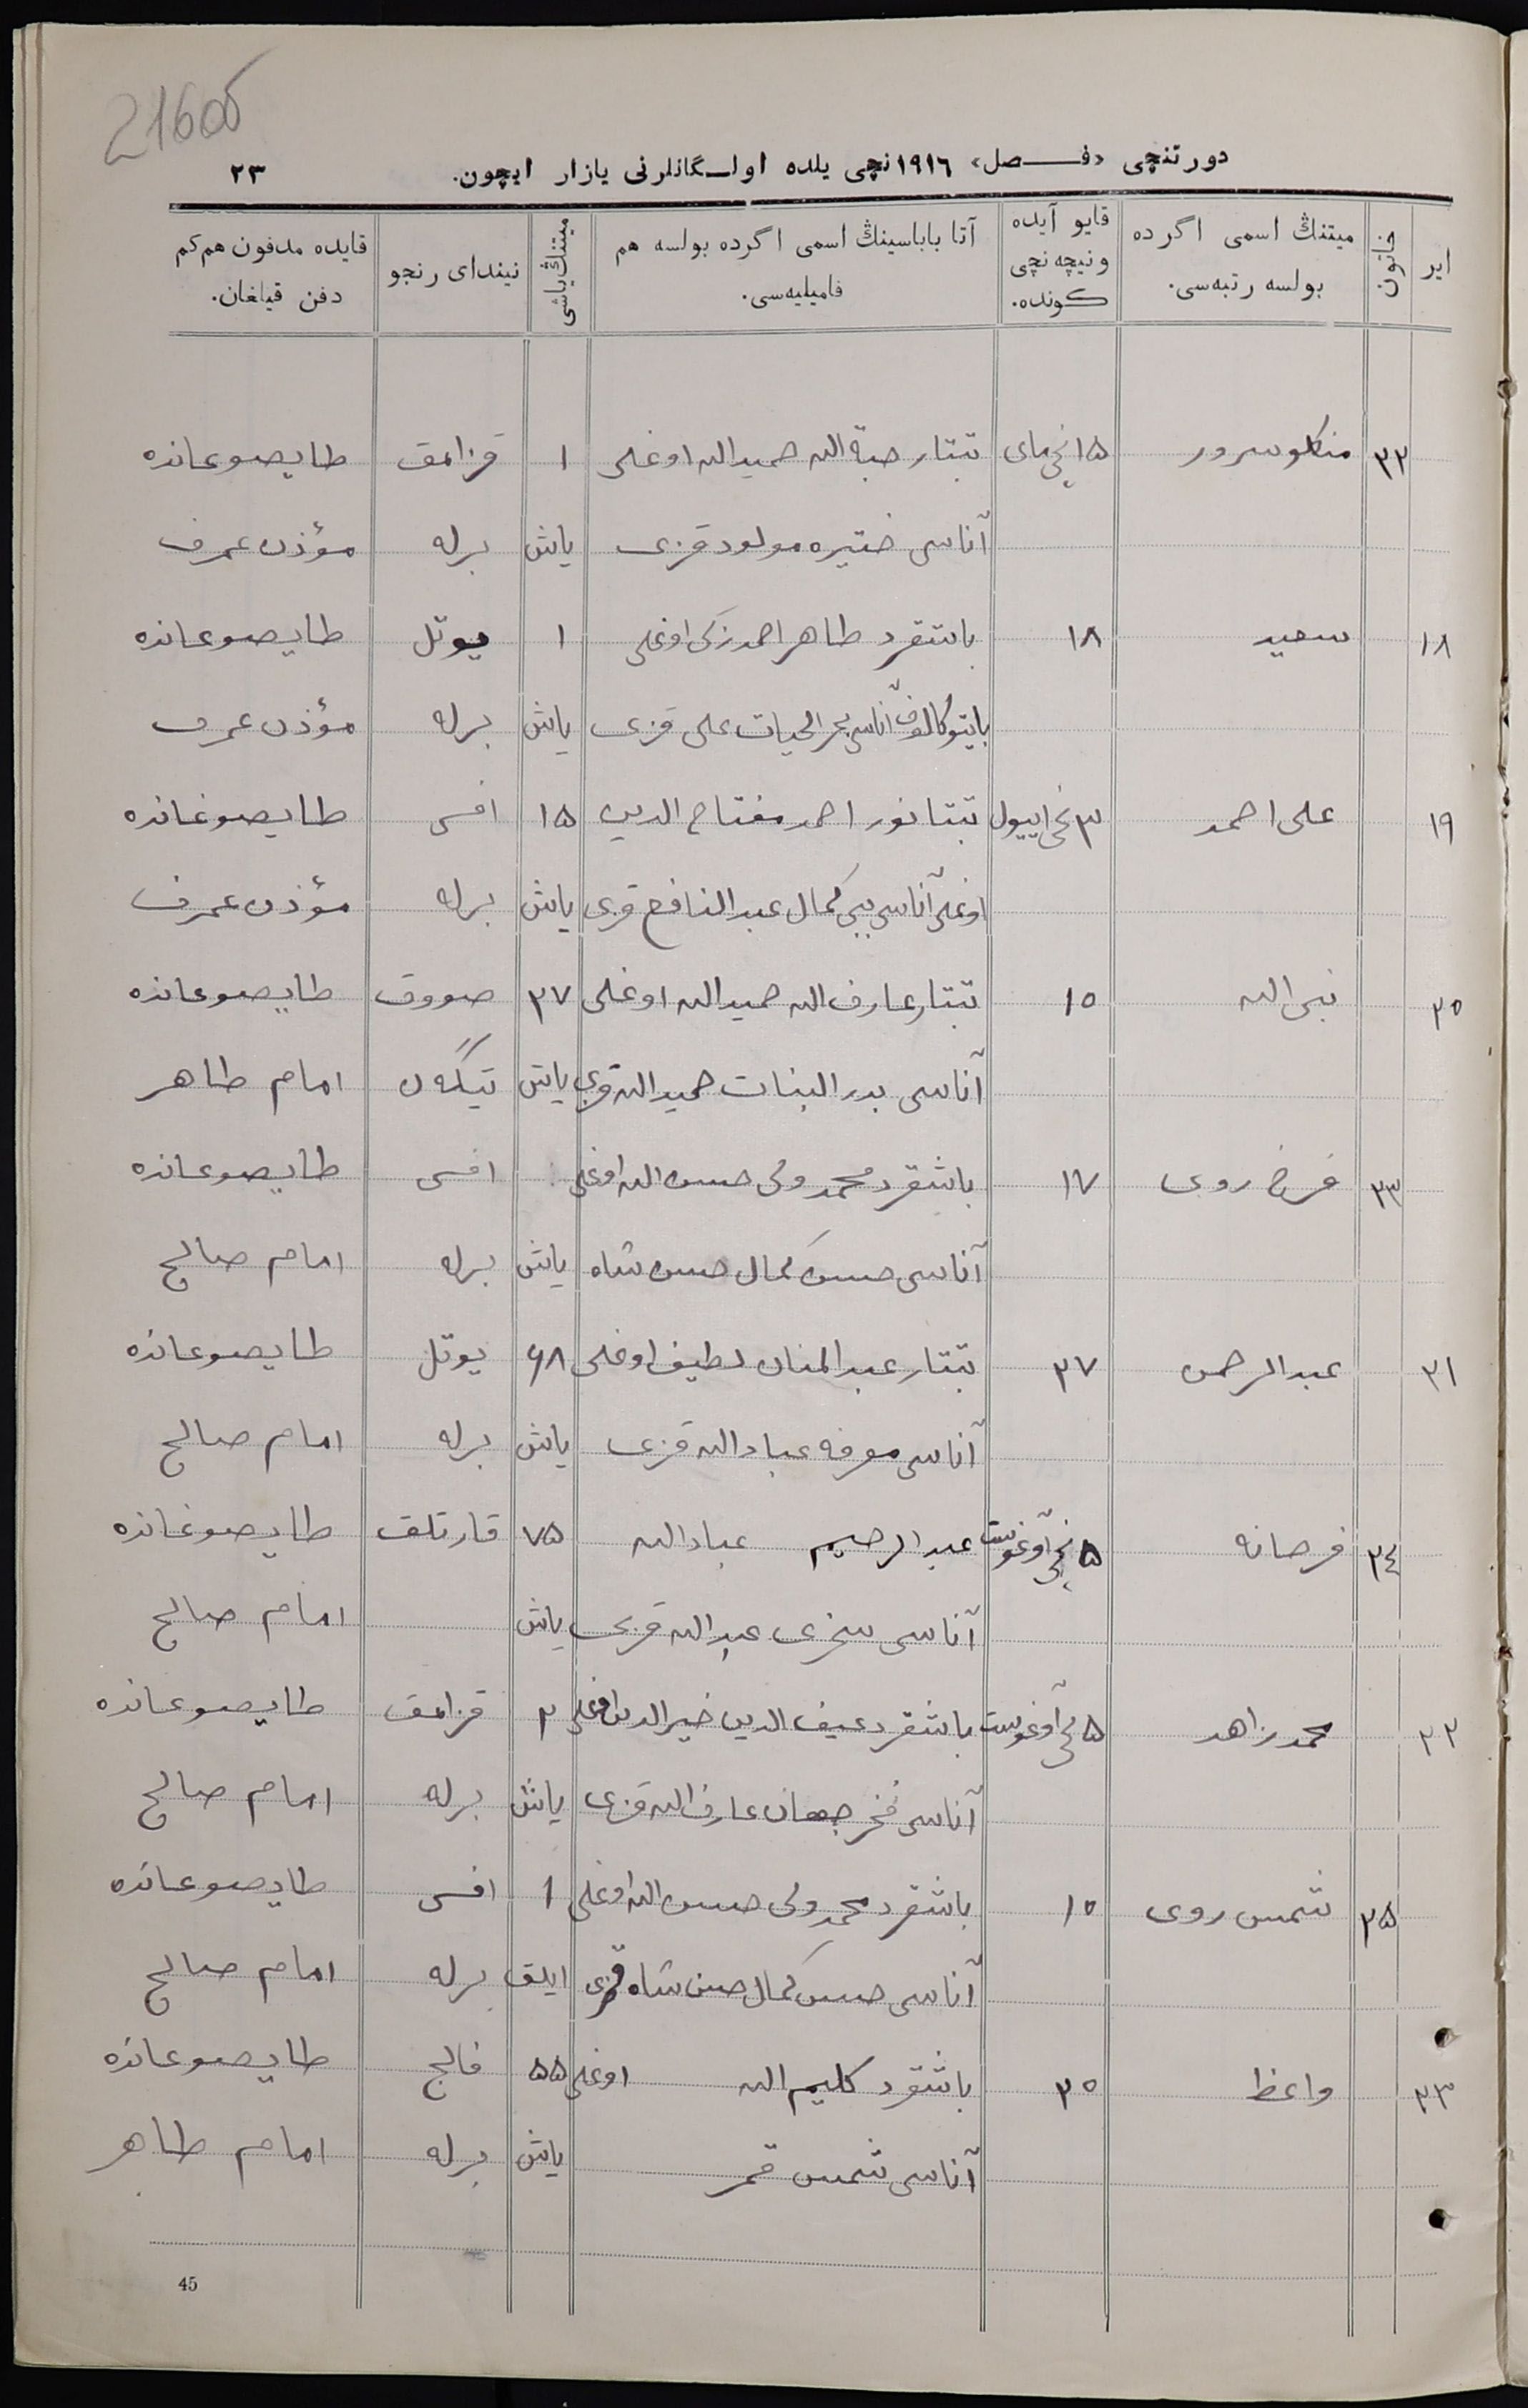 216 об
دورتنچی «فـصل» ١٩١٦نچی یلده اولـگانلرنی یازار ایچون. ٢٣
ایر | خاتون | میتنڭ اسمی اگرده بولسه رتبه‌سی. | قایو آیده ونیچه نچی کونده. | آتا باباسینڭ اسمی اگرده بولسه هم فامیلیه‌سی. | میتنڭ یاشی | نیندای رنجو | قایده مدفون هم کم دفن قیلغان.
٣٢ منکلوسرور ١۵نچی مای تبتار هبة الله حمیدالله اوغلی ١ قزامق طایصوغانده
آناسی ختیره مولود قزی یاش برله مؤذن عمرف
١٨ سعید ١٨ باشقرد طاهر احمدزکی اوغلی ١ یوتل طایصوغانده
آناسی بحرالحیات علی قزی یاش برله مؤذن عمرف
١٩ علی احمد ٣نچی اییول تبتا نور احمد مفتاح الدین ١۵ افسی طایصوغانده
اوغلی آناسی بیبی کمال عبدالنافع قزی یاش برله مؤذن عمرف
٢٥ نبی الله ١٥ تبتار عارف الله حمیدالله اوغلی ٣٧ صووق طایصوغانده
آناسی بدر البنات حمیدالله قزی یاش تیگان امام طاهر
٣٣ فرخ روی ١٧ باشقرد محمدولی حسن الله اوغلی افسی طایصوغانده
آناسی حسن کمال حسن شاه یاش برله امام صالح
٢١ عبدالرحمن ٢٧ تبتار عبدالمنان لطیف اوغلی ۶٨ یوتل طایصوغانده
آناسی معرفه عبادالله قزی یاش برله امام صالح
٣٤ فرحانه ۵نچی آوغوست عبدالرحیم عبادالله ٧۵ قارتلق طایصوغانده
آناسی عبدالله قزی یاش امام صالح
٢٢ محمدزاهد ۵نچی آوغوست باشقرد عیف الدین خیرالدین اوغلی ٢ قزامق طایصوغانده
آناسی فخرجهان عارف الله قزی یاش برله امام صالح
٣۵ شمس روی ١٥ باشقرد محمدولی حسن الله اوغلی ١ افسی طایصوغانده
آناسی حسن کمال حسن شاه قزی ایلق برله امام صالح
٢٣ واعظ ٢٥ باشقرد کلیم الله اوغلی ۵۵ فالج طایصوغانده
آناسی شمس قمر یاش برله امام طاهر
45